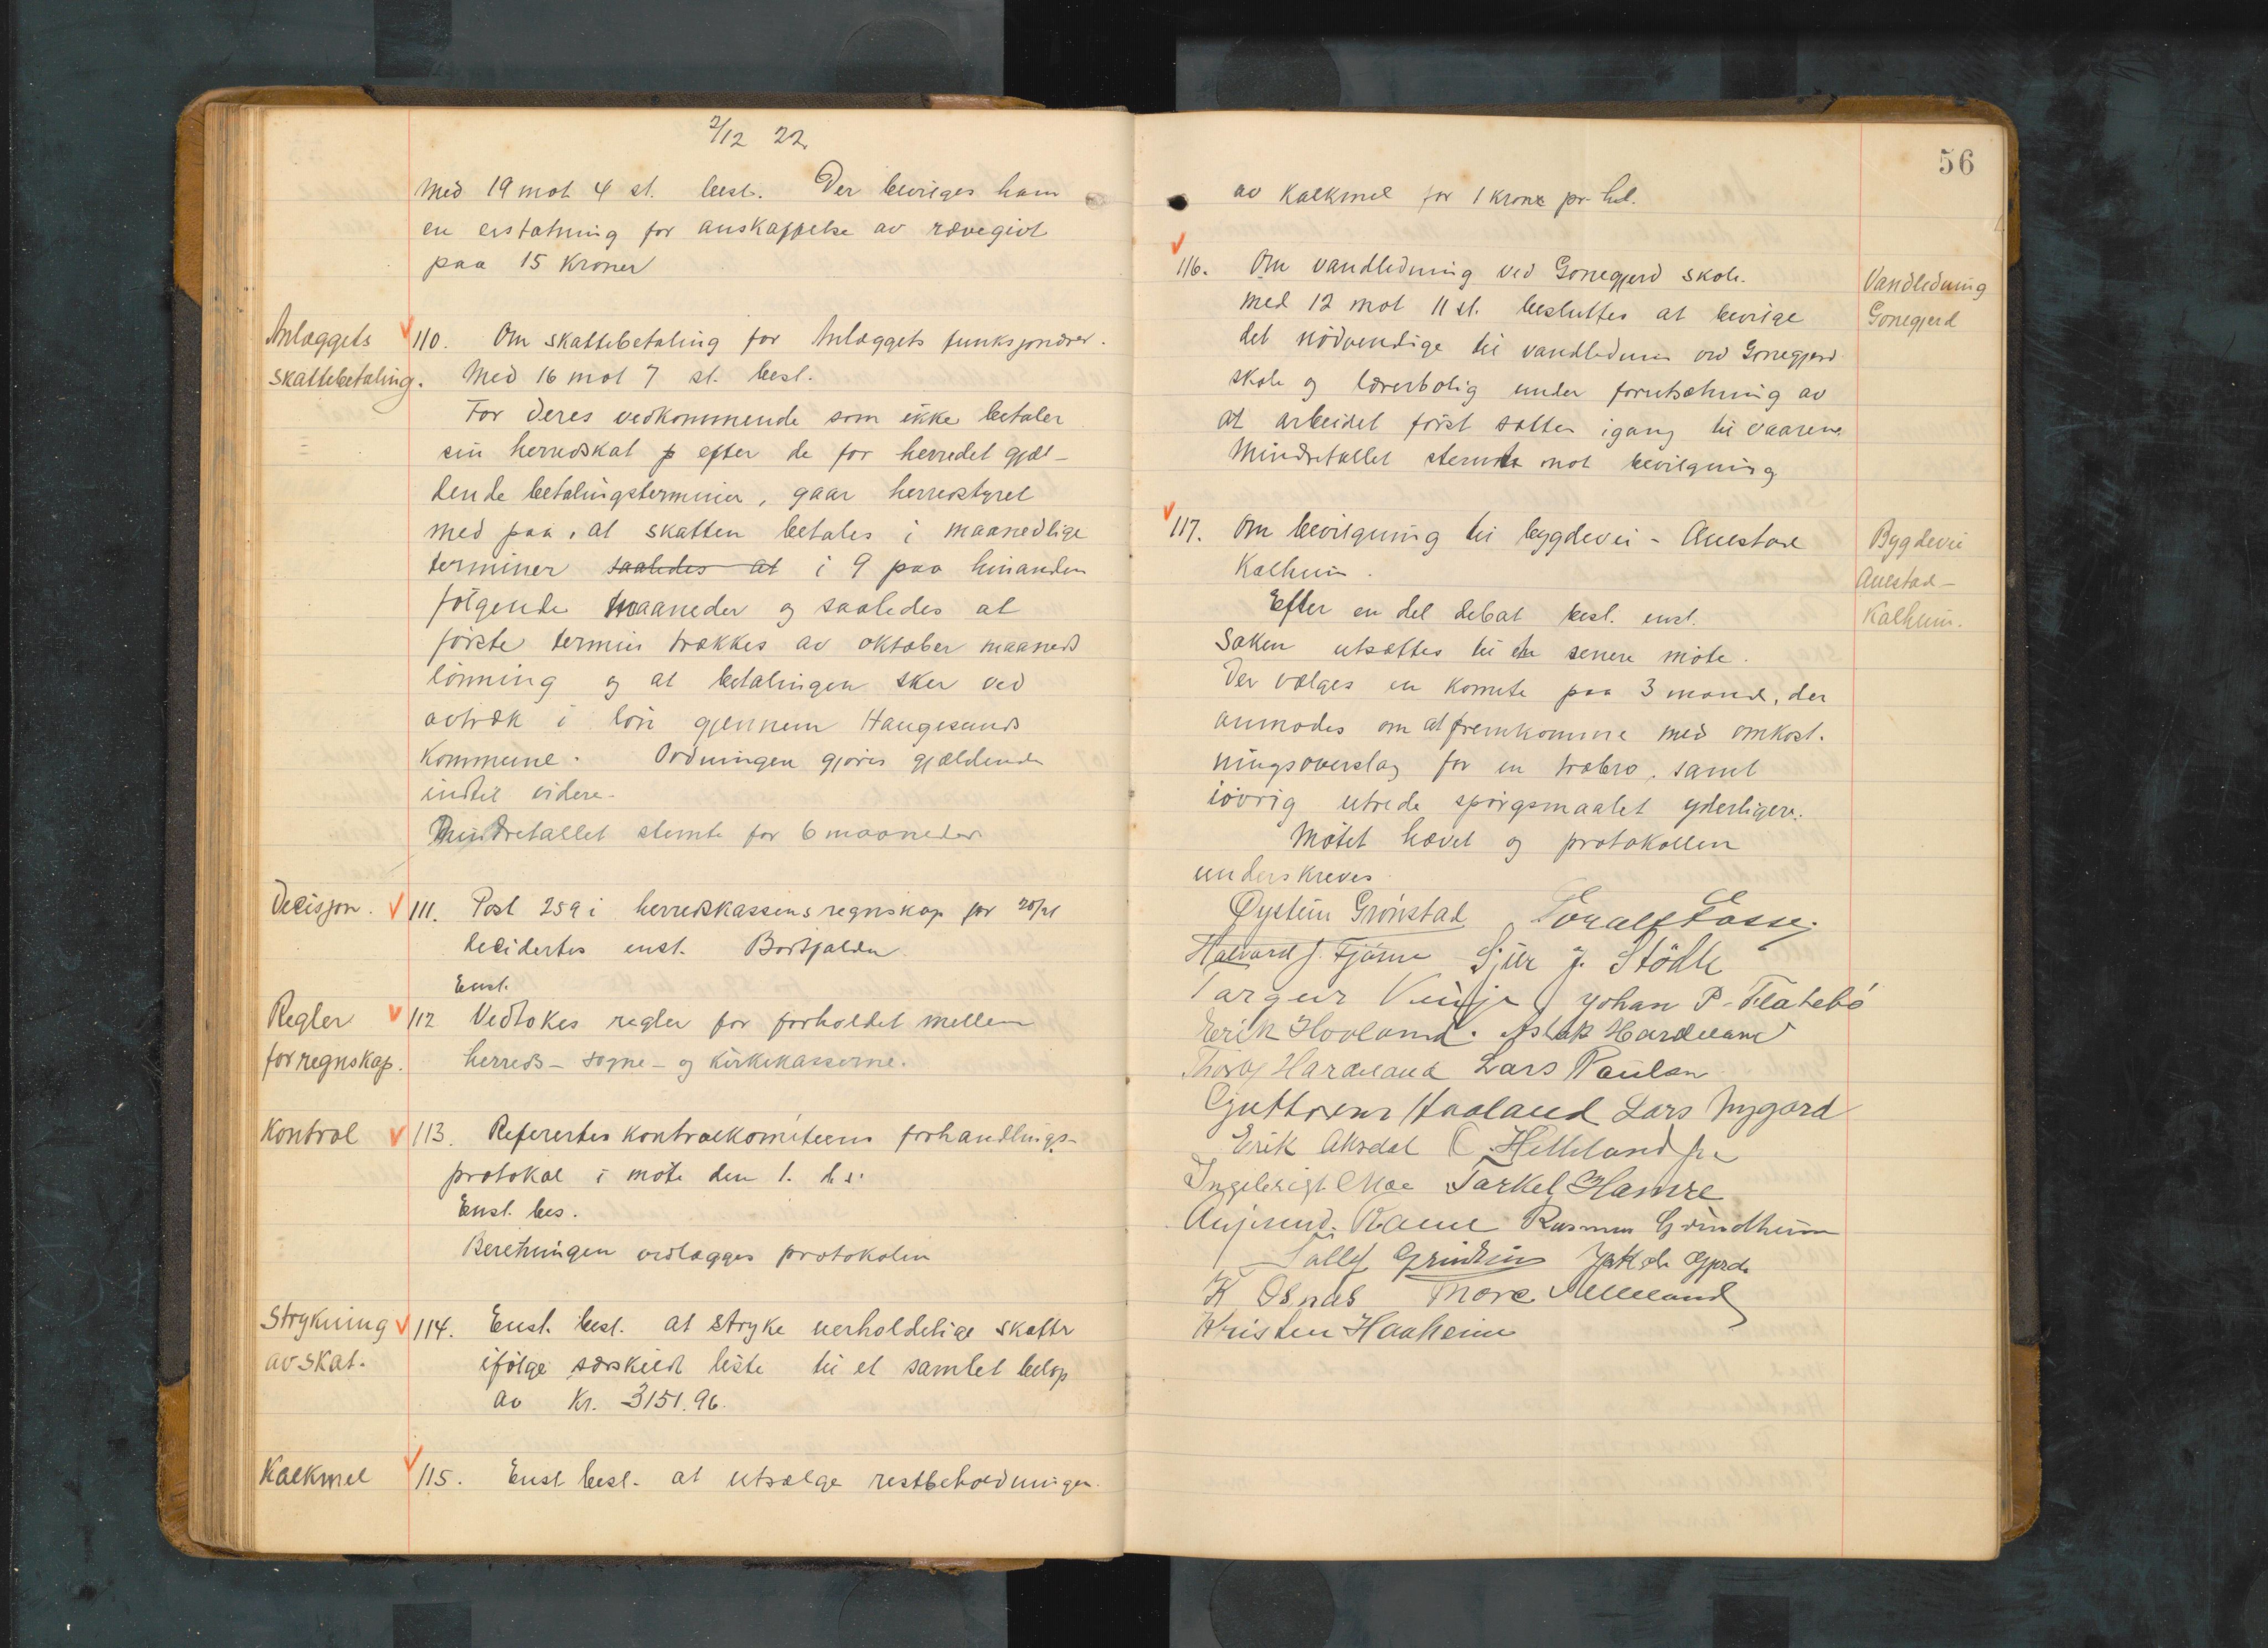 2/12 22.
med 19 mot 4 st. besl. Der bevilges ham
en erstatning for anskaffelse av rævegivt
paa 15 Kroner
Anlæggets
skattebetaling.
110. Om skattebetaling for Anlæggets funksjonærer.
Med 16 mot 7 st. besl.
For deres vedkommende som ikke betaler
sin herredskat efter de for herredet gjæl-
dende betalingsterminer, gaar herredstyret
med paa, at skatten betales i maanedlige
terminer saaledes at i 9 paa hinanden
følgende maaneder og saaledes at
første termin trækkes av oktober maaneds
lønning og at betalingen sker ved
avtræk i løn gjennem Haugesunds
Kommune. Ordningen gjøres gjældende
indtil videre.
Mindretallet stemte for 6 maaneder
Decisjon.
111. Post 259 i herredskassens regnskap for 20/21
decidertes enst. Bortfalder
Enst.
Regler
for regnskap.
112 Vedtokes regler for forholdet mellem
herreds- sogne- og kirkekasserne.
Kontrol
113. Refertes kontrolkomiteens forhandlings-
protokol i møte den 1. ds.
Enst. bes.
Beretningen vedlægges protokolen
Strykning
av skat.
114. Enst. besl. at stryke uerholdelige skatter
ifølge særskilt liste til et samlet beløp
av Kr. 3151.96.
Kalkmel
115. Enst besl. at utsælge restbeholdningen
56
av Kalkmel for 1 krone pr. hl.
116. Om vandledning ved Gonegjerd skole.
Vandledning
Gonegjerd
med 12 mot 11 st. besluttes at bevilge
det nødvendige til vandledning ved Gonegjerd
skole og lærerbolig under forutsætning av
at arbeidet først sættes igang til vaaren.
Mindretallet stemte mot bevilgning
117. Om bevilgning til bygdevei - Auestad
Kalheim.
Bygdevei
Auestad-
Kalheim.
Efter en del debat besl. enst.
Saken utsættes til et senere møte.
Der vælges en komite paa 3 mand, der
anmodes om at fremkomme med omkost-
ningsoverslag for en træbro, samt
iøvrig utrede spørgsmaalet yderligere.
Møtet hævet og protokollen
underskreves.
Øystein Grønstad Toralf Fosse
Halvard J. Fjøsne Sjur J. Stødle
Targeir Vinje Johan P. Flatebø
Erik Hovland. Aslak Hardeland
Hardeland Lars Paulsen
Guttorm Haaland Lars Nygard
Erik Aksdal Helleland
Ingebrigt Moe Torkel Hamre
Rame Rasmus Grindheim
Tallef Grindheim Jakob Gjerde
K Osnes Tore Milleland
Kristen Haaheim